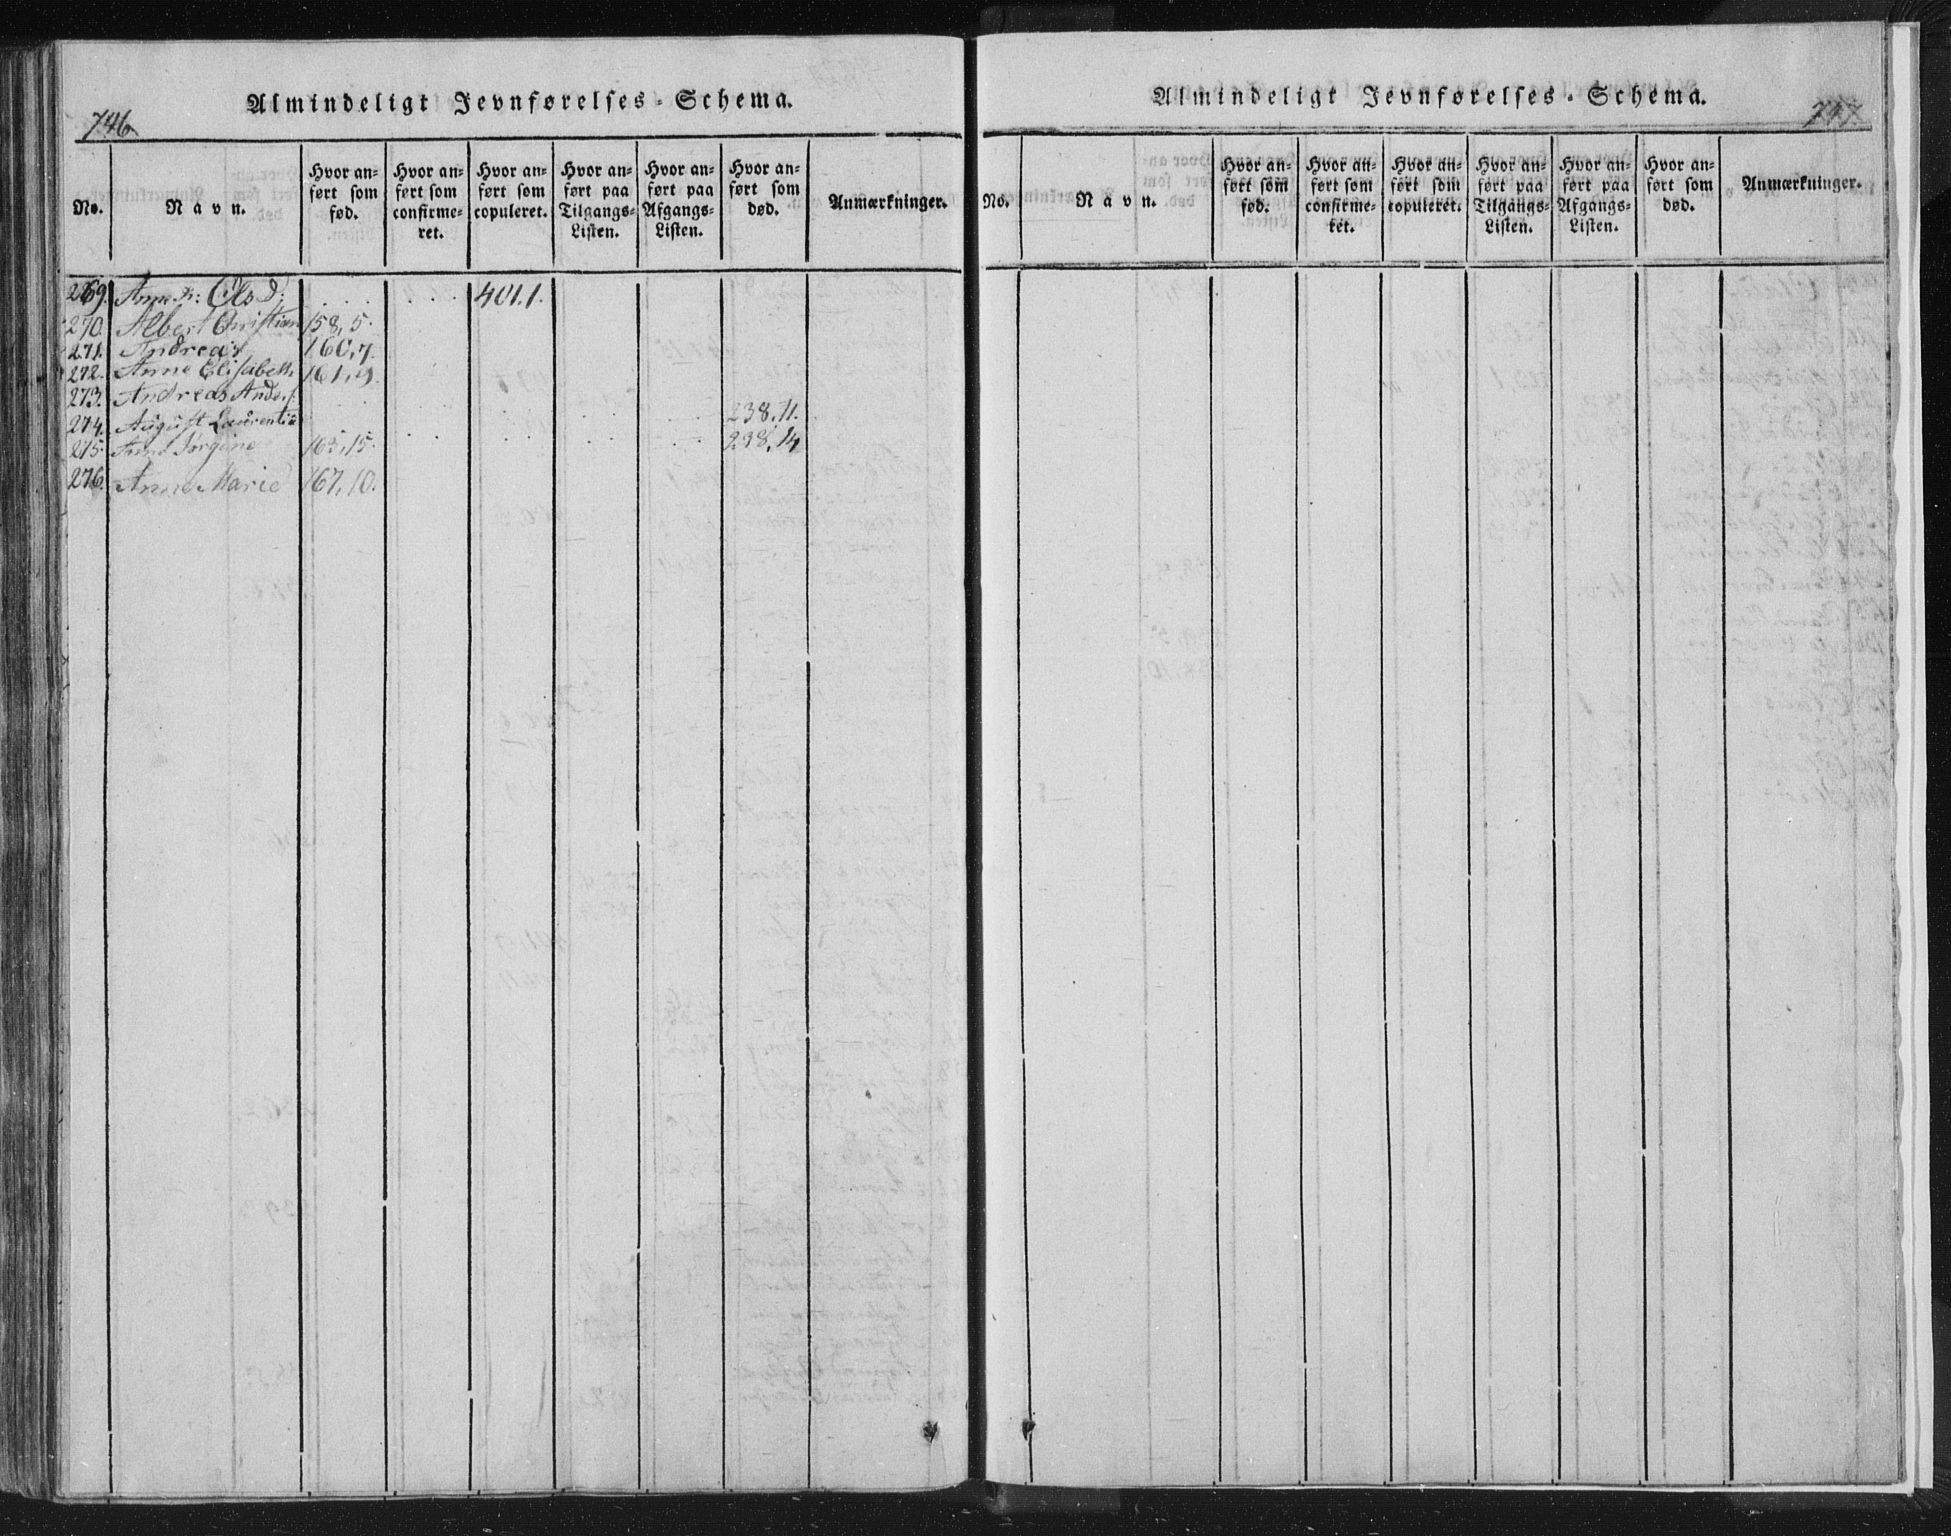 746.
Almindeligt Jevnførelses-Schema.
No.
Navn.
Hvor anført som fød.
Hvor anført som confirmeret.
Hvor anført som copuleret.
Hvor anført paa Tilgangs-Listen.
Hvor anført paa Afgangs-Listen.
Hvor anført som død.
Anmærkninger.
269. Anne K: Olsd: 401.1.
270. Albert Christian 158,5.
271. Andreas 160,7.
272. Anne Elisabeth 161,9.
273. Andreas Anders. 238,11.
274. August Laurentius 238,14
275. Anne Jørgine 163,15.
276. Anne Marie 167,10.
Almindeligt Jevnførelses-Schema.
747
No.
Navn.
Hvor anført som fød.
Hvor anført som confirmeret.
Hvor anført som copuleret.
Hvor anført paa Tilgangs-Listen.
Hvor anført paa Afgangs-Listen.
Hvor anført som død.
Anmærkninger.